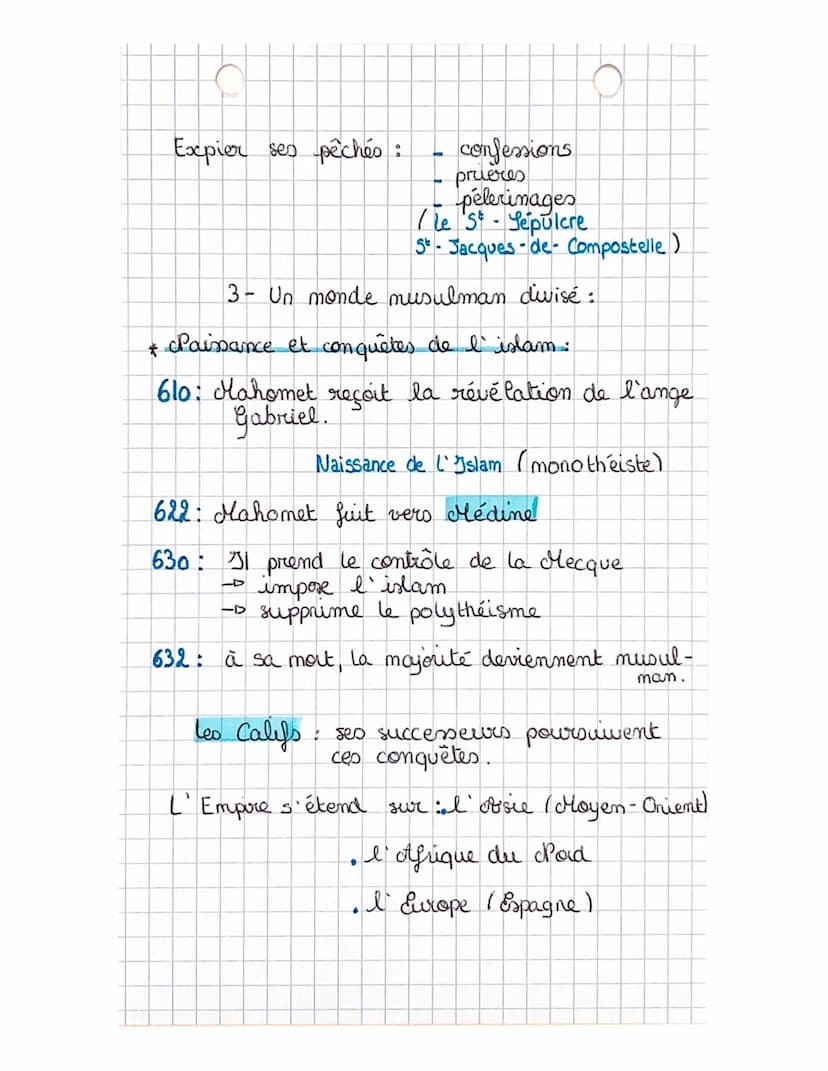 Expier ses pêchés : - confessions
- prières
- pélerinages
(le St - Sépulcre
St - Jacques - de - Compostelle)
3 - Un monde musulman divisé :
* Naissance et conquêtes de l'islam :
610 : Mahomet reçoit la révélation de l'ange
Gabriel.
Naissance de l'Islam (monothéiste)
622 : Mahomet fuit vers Médine
630 : Il prend le contrôle de la Mecque
→ impose l'islam
→ supprime le polythéisme
632 : à sa mort, la majorité deviennent musul-
man.
Les Califs : ses successeurs poursuivent
ces conquêtes.
L'Empire s'étend sur : . l'Asie (Moyen-Orient)
. l'Afrique du Nord
. l'Europe (Espagne)